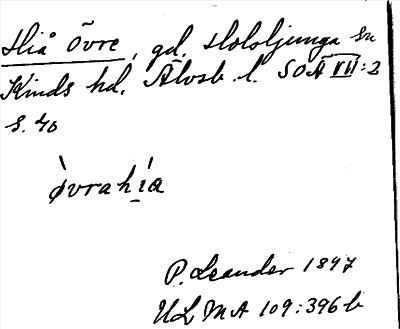 Hiå Övre, gd. Hololjunga sn
Kinds hd. Älvsb. l. SOÄ VII:2
s. 40
ø̀vrahɩ́a
P. Leander 1897
ULMA 109:396 b